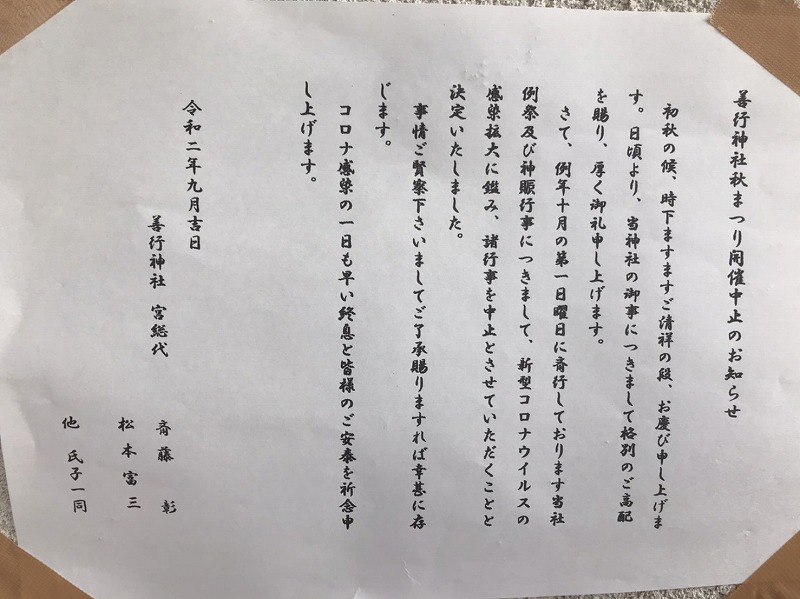 善行神社秋まつり開催中止のお知らせ
初秋の候、時下ますますご清祥の段、お慶び申し上げま
す。日頃より、当神社の御事につきまして格別のご高配
を賜り、厚く御礼申し上げます。
さて、例年十月の第一日曜日に斎行しております当社
例祭及び神賑行事につきまして、新型コロナウイルスの
感染拡大に鑑み、諸行事を中止とさせていただくことと
決定いたしました。
事情ご賢察下さいましてご了承賜りますれば幸甚に存
じます。
コロナ感染の一日も早い終息と皆様のご安泰を祈念申
し上げます。
令和二年九月吉日
善行神社 宮総代
斎藤 彰
松本富三
他 氏子一同